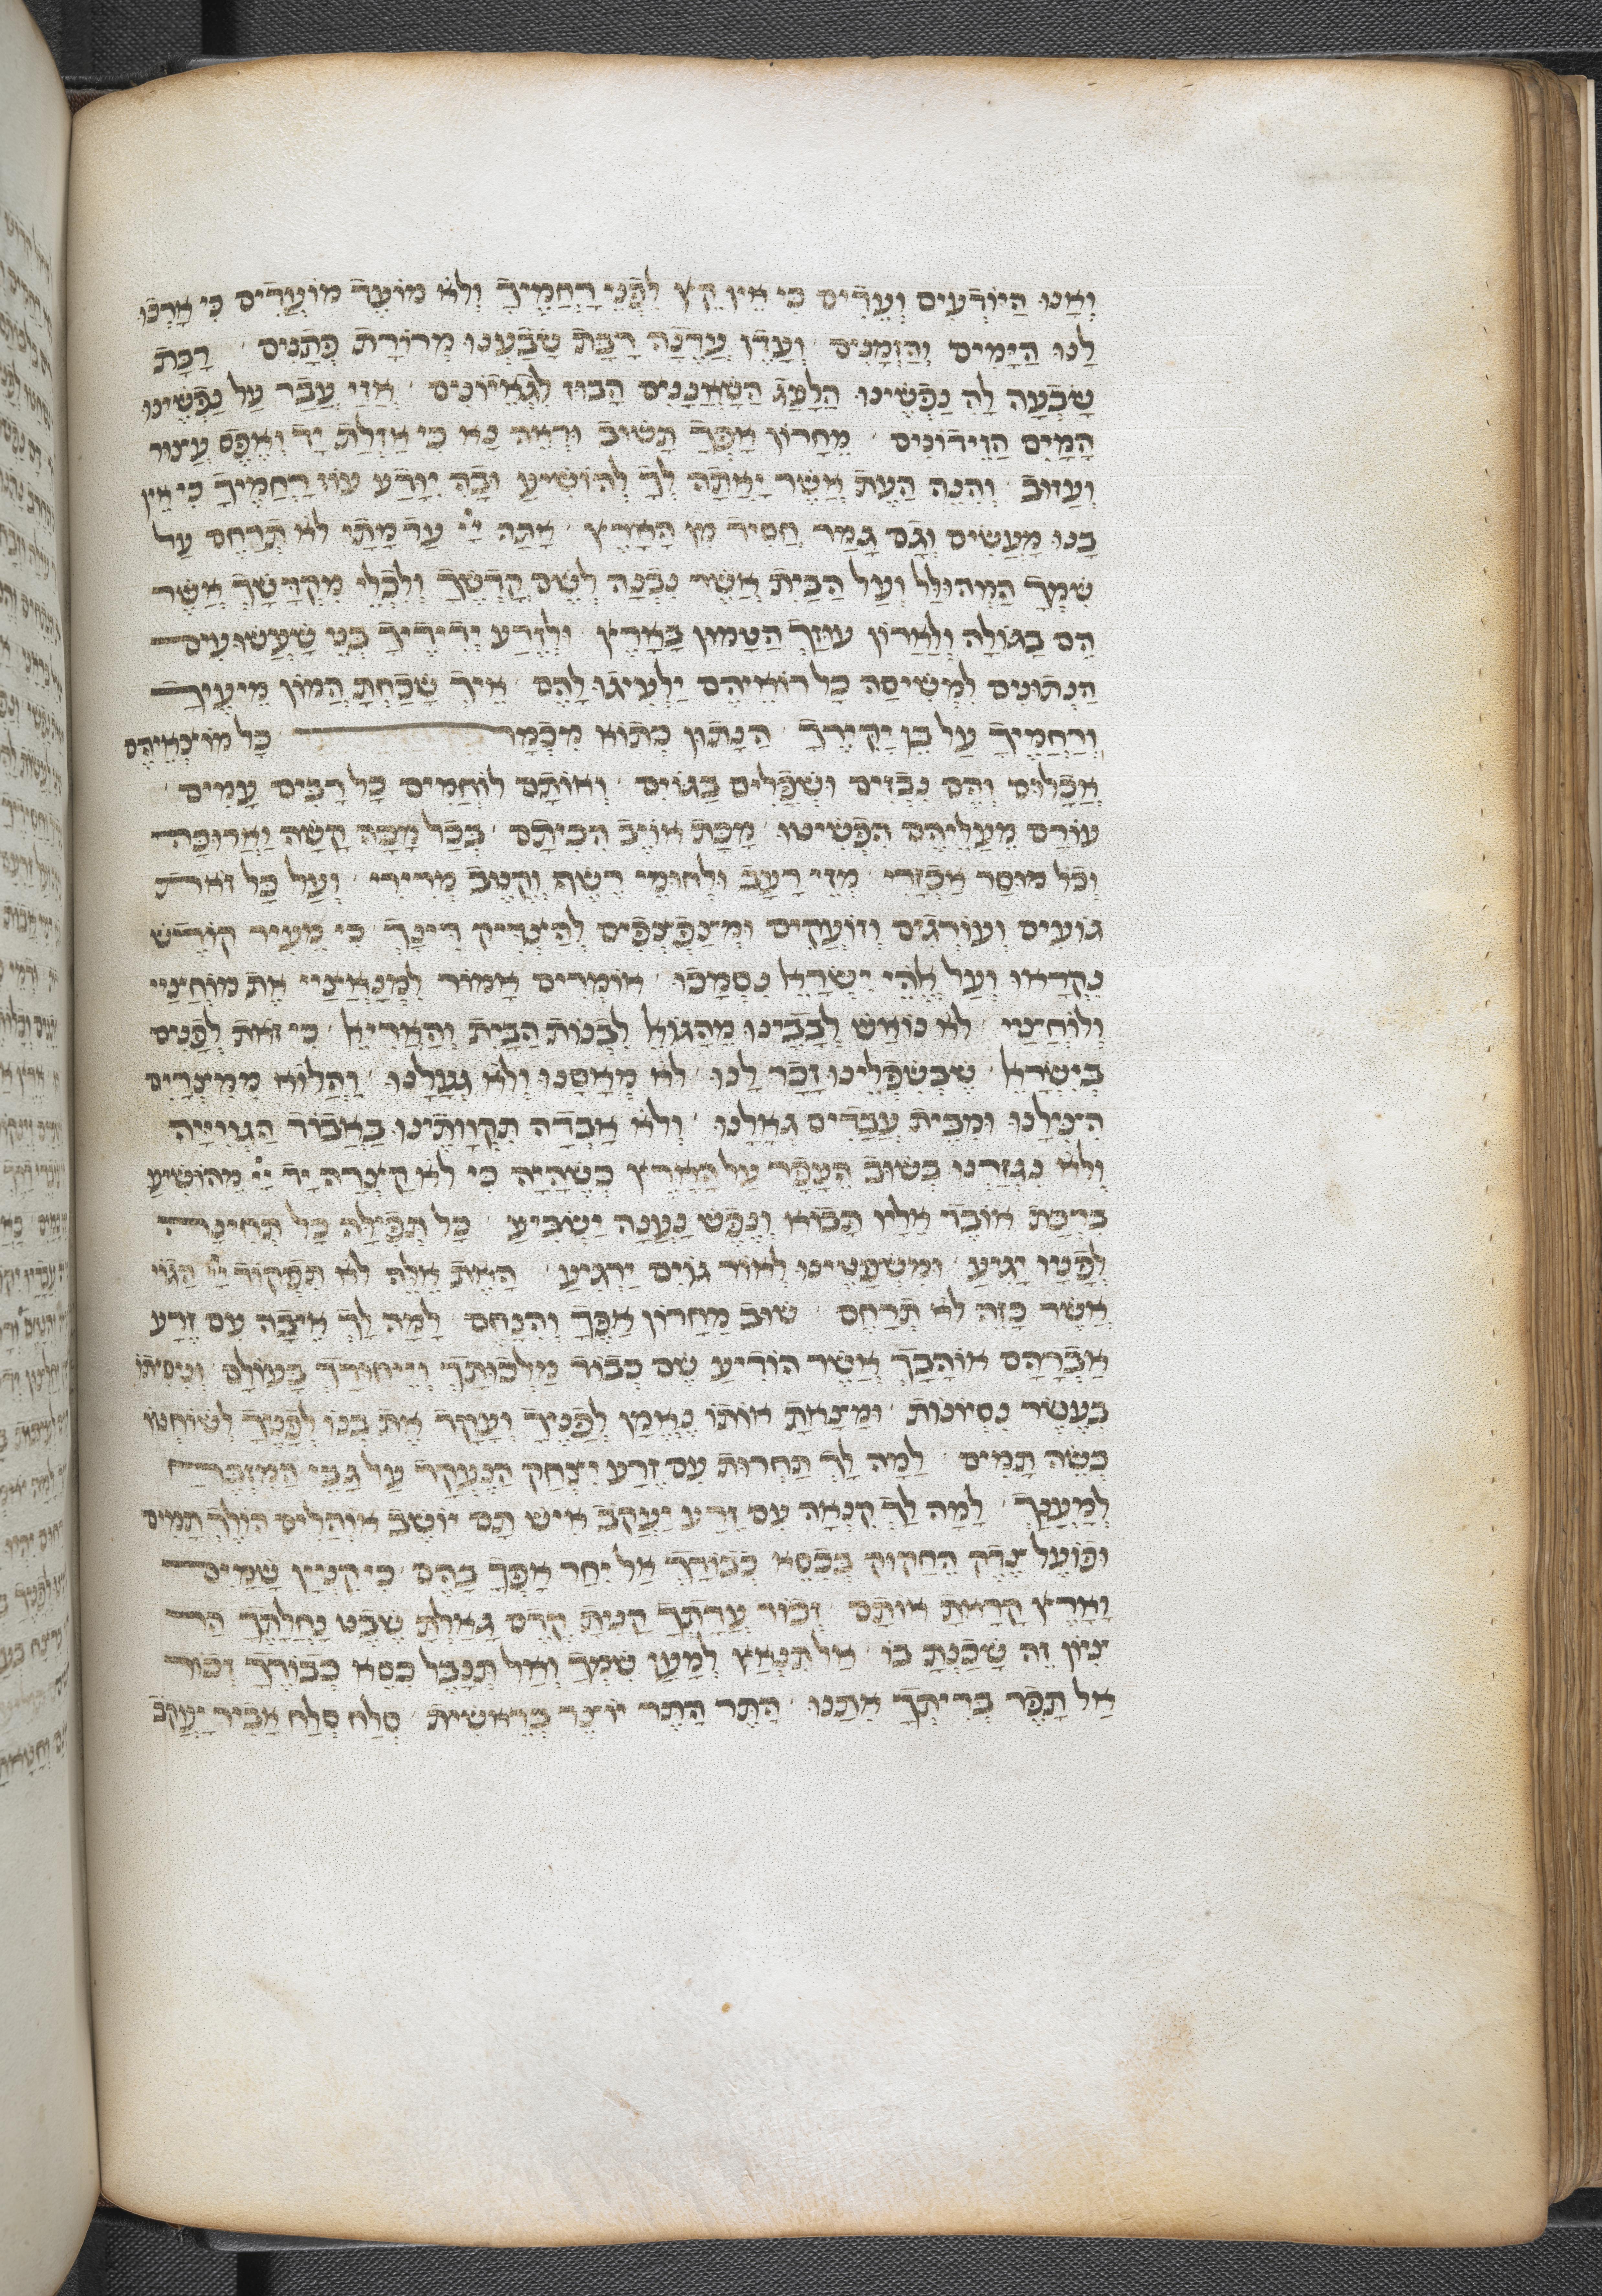 וַאֲנוּ הַיּוֹדְעִים וְעֵדִים כִּי אֵין קֵץ לִפְנֵי רַחֲמֶיךָ וְלֹא מוֹעֵד מוֹעֲדִים כִּי אָרְכוּ
לָנוּ הַיָּמִים וְהַזְמַנִּים וְעִדָּן עִדָּנָה רַבַּת שָׂבַעְנוּ מְרוֹרַת פְּתָנִים רַבַּת
שָׂבְעָה לָהּ נַפְשֵׁינוּ הַלַּעַג הַשַּׁאֲנַנִּים הַבּוּז לִגְאֵיוֹנִים אֲזַי עָבַר עַל נַפְשֵׁינוּ
הַמַּיִם הַזֵּידוֹנִים מֵחֲרוֹן אַפְּךָ תָּשׁוּב וּרְאֵה נָא כִּי אָזְלַת יָד וְאֶפֶס עָצוּר
וְעָזוּב וְהִנֵּה הָעֵת אֲשֶׁר יָאֲתָה לְךָ לְהוֹשִׁיעַ וּבָהּ יִוָּדַע עוֹז רַחֲמֶיךָ כִּי אֵין
בָּנוּ מַעֲשִׂים וְגַם גָּמַר חָסִיד מִן הָאָרֶץ אַתָּה יי עַד מָתַי לֹא תְרַחֵם עַל
שִׁמְךָ הַמְהוּלָּל וְעַל הַבַּיִת אֲשֶׁר נִבְנָה לְשֵׁם קָדְשֶׁךָ וְלִכְלֵי מִקְדָּשֶׁךָ אֲשֶׁר
הֵם בַּגּוֹלָה וְלַאֲרוֹן עוּזֶּךָ הַטָּמוּן בָּאָרֶץ וּלְזֶרַע יְדִידֶיךָ בְּנֵי שַׁעֲשׁוּעִים
הַנְּתוּנִים לִמְשִׁיסָּה כָּל רוֹאֵיהֶם יַלְעִיגוּ לָהֶם אֵיךְ שָׁכַחְתָּ הֲמוֹן מֵיעֶיךָ
וְרַחֲמֶיךָ עַל בֵּן יַקִּירֶךָ הַנָּתוּן כְּתוֹא מִכְמָר כָּל מוֹצְאֵיהֶם
אֲכָלוּם וְהֵם נִבְזִים וּשְׁפָלִים בַּגּוֹיִם וְאוֹתָם לוֹחֲמִים כָּל רַבִּים עַמִּים
עוֹרָם מֵעֲלֵיהֶם הִפְשִׁיטוּ מַכַּת אוֹיֵב הִכִּיתָם בְּכָל מַכָּה קָשָׁה וַאֲרוּכָּה
וְכָל מוּסָר אַכְזָרִי מְזֵי רָעָב וּלְחוּמֵי רֶשֶׁף וְקֶטֶב מְרִירִי וְעַל כָּל זֹאת
גּוֹעִים וְעוֹרְגִים וְזוֹעֲקִים וּמְצַפְצְפִים לְהַצְדִּיק דִּינֶךָ כִּי מֵעִיר קוֹדֶשׁ
נִקְרָאוּ וְעַל אֱלֹהֵי יִשְׂרָאֵל נִסְמָכוּ אוֹמְרִים אָמוֹר לִמְנָאֲצַיי אֶת מוֹחֲצַיי
וְלוֹחֲצַי לֹא נוֹאַשׁ לְבָבֵינוּ מֵהַגּוֹאֵל לִבְנוֹת הַבַּיִת וְהָאֲרִיאֵל כִּי זֹאת לְפָנִים
בְּיִשְׂרָאֵל שֶׁבְּשִׁפְלֵינוּ זָכַר לָנוּ לֹא מְאָסָנוּ וְלֹא גְעָלָנוּ וַהֲלוֹא מִמִּצְרַיִם
הִצִּילָנוּ וּמִבֵּית עֲבָדִים גְּאָלָנוּ וְלֹא אָבְדָה תִקְוָותֵינוּ בַּאֲבוֹד הַגְּוִויָּיה
וְלֹא נִגְזַרְנוּ בְּשׁוּב הֶעָפָר עַל הָאָרֶץ כְּשֶׁהָיָה כִּי לֹא קָצְרָה יַד יי מֵהוֹשִׁיעַ
בִּרְכַּת אוֹבֵד אֵלָיו תָּבוֹא וְנֶפֶשׁ נַעֲנָה יַשְׂבִּיעַ כָּל תְּפִילָּה כָּל תְּחִינָּה
לְפָנָיו יָגִיעַ וּמִשְׁפָּטֵינוּ לְאוֹר גּוֹיִם יַרְגִּיעַ הָאֶת אֵלֶּה לֹא תִפְקוֹד יי הַגּוֹי
אֲשֶׁר כָּזֶה לֹא תְרַחֵם שׁוּב מֵחֲרוֹן אַפֶּךָ וְהִנָּחֵם לָמָּה לְךָ אֵיבָה עִם זֶרַע
אַבְרָהָם אוֹהַבְךָ אֲשֶׁר הוֹדִיעַ שֵׁם כְּבוֹד מַלְכוּתָךְ וְיִיחוּדָךְ בָּעוֹלָם וְנִסִּיתוֹ
בַּעֲשֶׂר נִסְיוֹנוֹת וּמָצָאתָ אוֹתוֹ נֶאֱמָן לְפָנֶיךָ וְעָקַד אֶת בְּנוֹ לְפָנֶיךָ לְשׁוֹחֲטוֹ
כְּשֶׂה תָמִים לָמָּה לְךָ תַּחֲרוּת עִם זֶרַע יִצְחָק הַנֶּעֱקַד עַל גַּבֵּי הַמִּזְבֵּחַ
לְמַעֲנָךְ לָמָּה לְךָ קִנְאָה עִם זֶרַע יַעֲקֹב אִישׁ תָּם יוֹשֵׁב אוֹהָלִים הוֹלֵךְ תָּמִים
וּפוֹעֵל צֶדֶק הֶחָקוּק בְּכִסֵּא כְבוֹדָךְ אַל יִחַר אַפְּךָ בָּהֶם כִּי קִנְיָין שָׁמַיִם
וָאָרֶץ קָרָאתָ אוֹתָם זְכוֹר עֲדָתְךָ קָנִיתָ קֶּדֶם גָּאַלְתָּ שֵׁבֶט נַחֲלָתֶךָ הַר
צִיּוֹן זֶה שָׁכַנְתָּ בּוֹ אַל תִּנְאַץ לְמַעַן שִׁמְךָ וְאַל תְּנַבֵּל כִּסֵּא כְבוֹדֶךָ זְכוֹר
אַל תָּפֵר בְּרִיתְךָ אִתָּנוּ הָתֵר הָתֵר יוֹצֵר בְּרֵאשִׁית סְלַח סְלַח אֲבִיר יַעֲקֹב